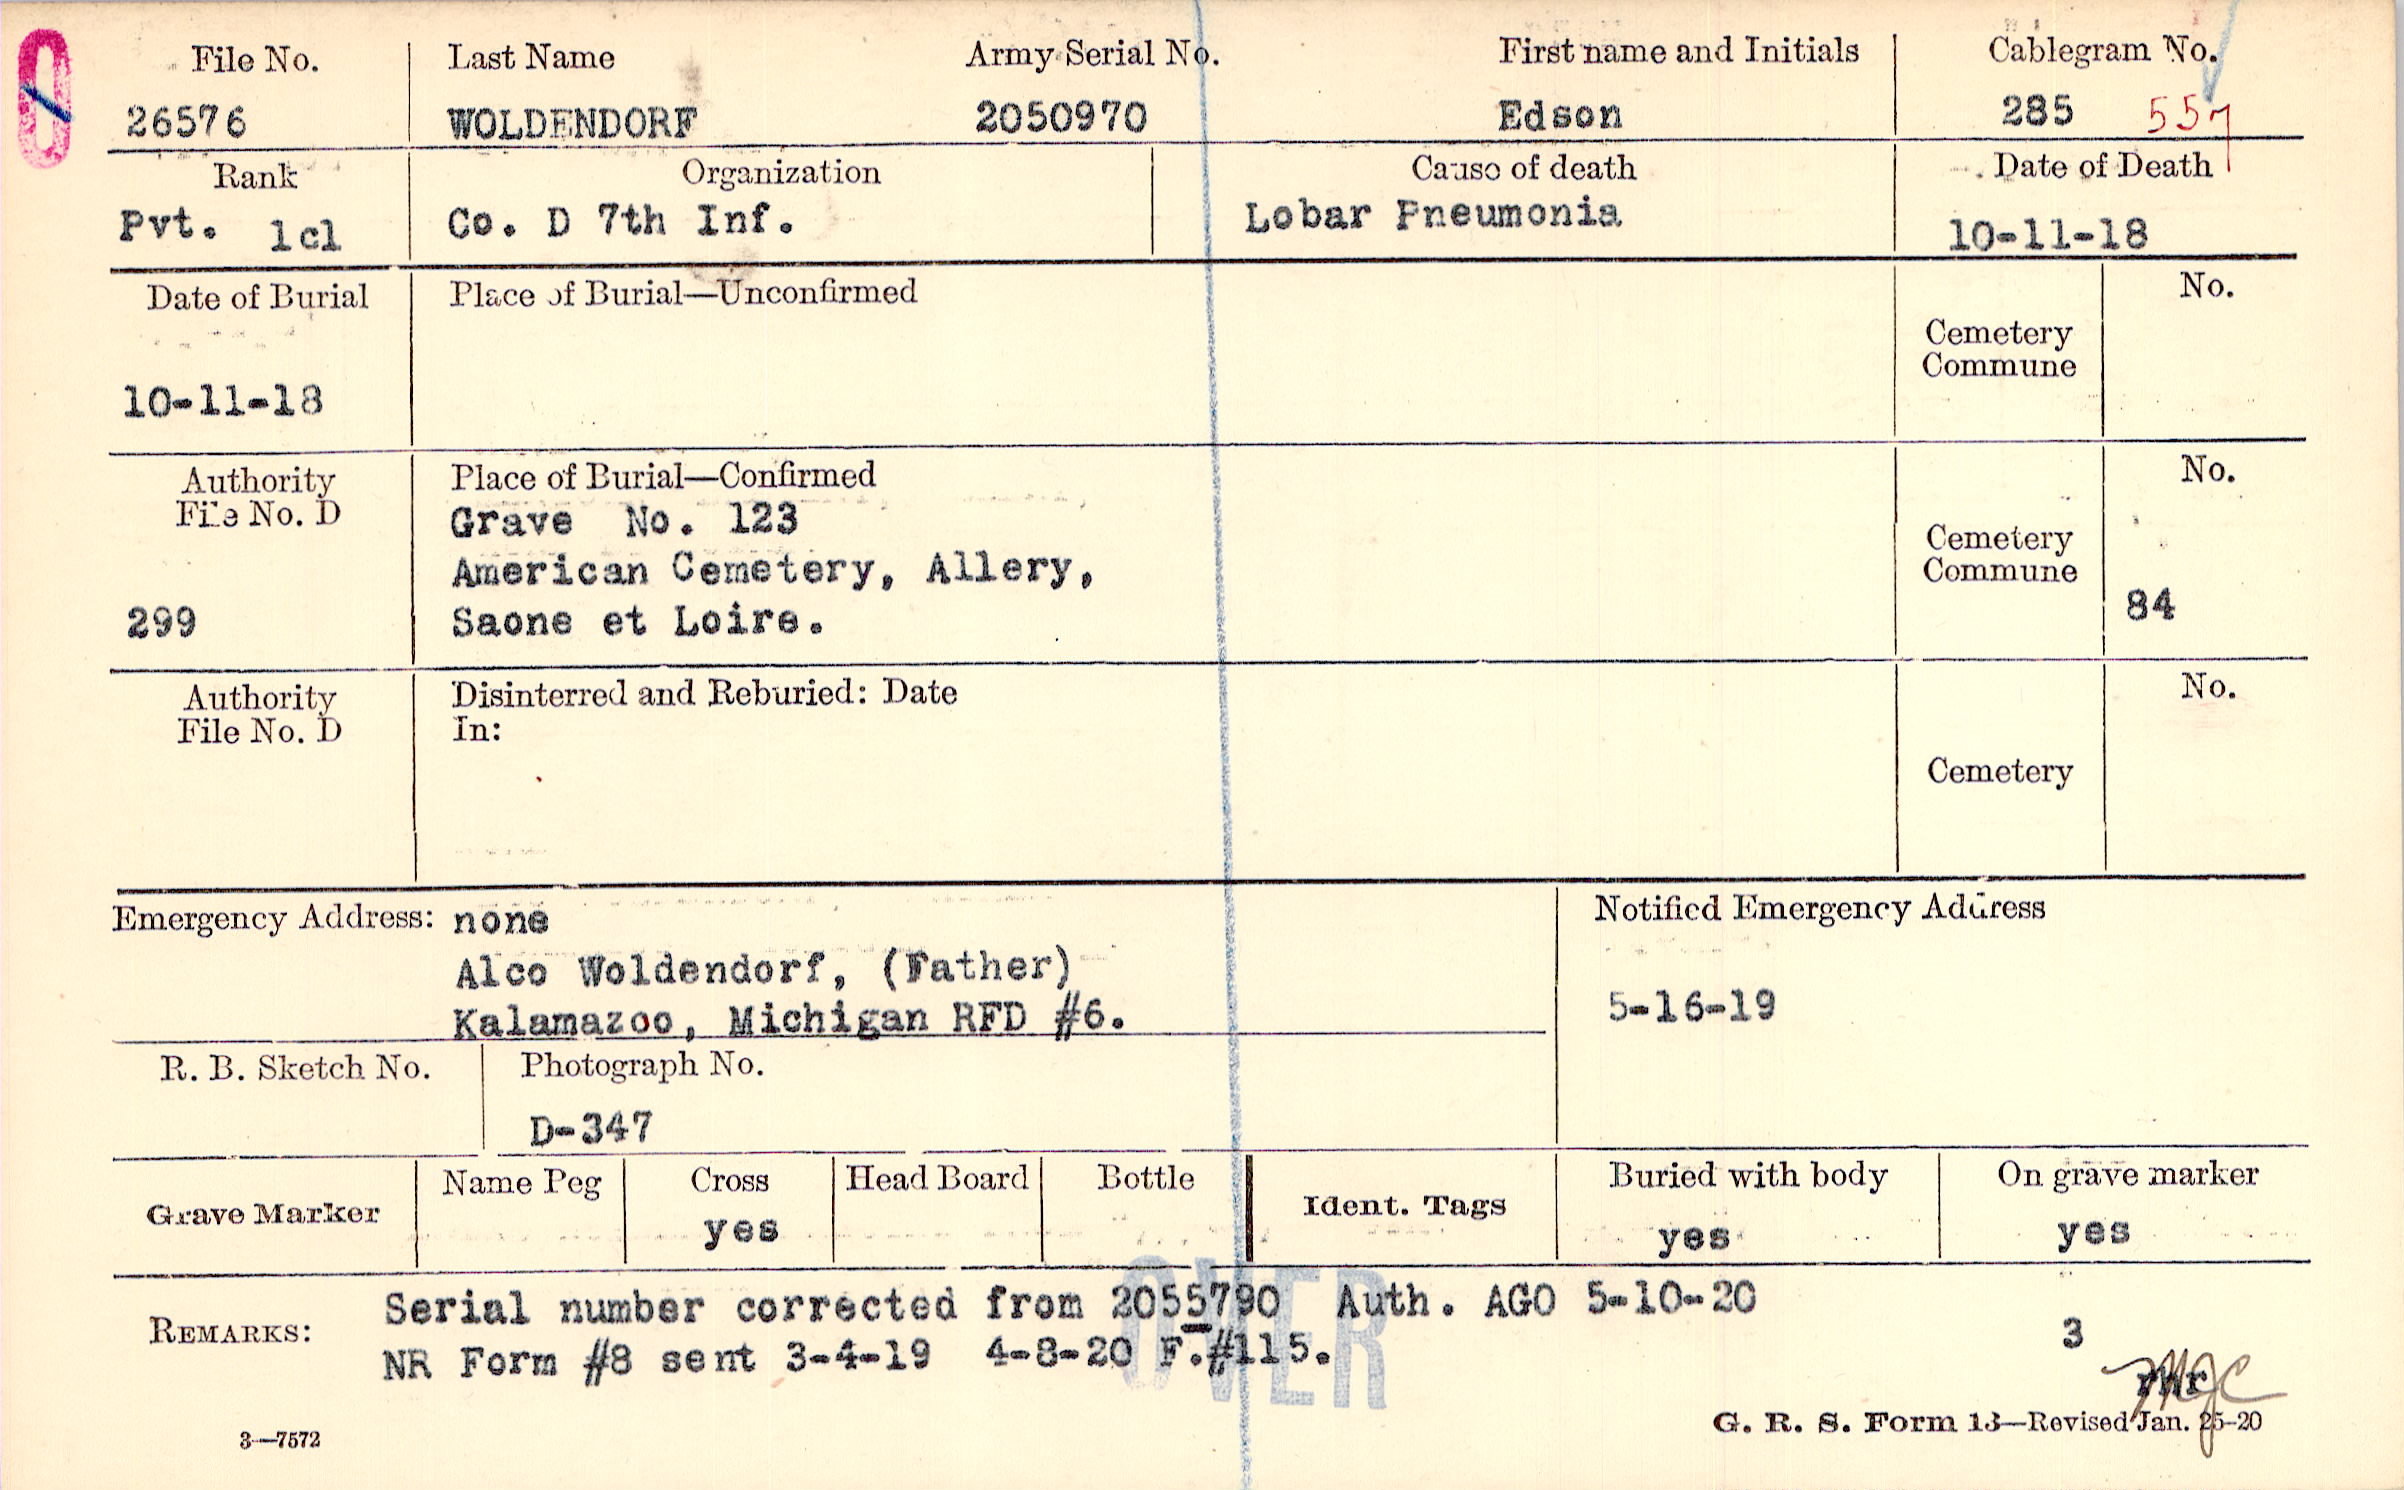 File No. Last Name Army Serial No. First name and Initials Cablegram No.
26576 WOLDENDORF 2050970 Edson 285 557
Rank Organization Cause of death Date of Death
Pvt. 1cl Co. D 7th Inf. Lobar Pneumonia 10-11-18
Date of Burial Place of Burial—Unconfirmed No.
Cemetery
Commune
10-11-18
Authority Place of Burial—Confirmed No.
File No. D Grave No. 123
Cemetery
American Cemetery, Allery, Commune
299 Saone et Loire. 84
Authority Disinterred and Reburied: Date No.
File No. D In:
Cemetery
Emergency Address: none Notified Emergency Address
Alco Woldendorf, (Father)
Kalamazoo, Michigan RFD #6. 5-16-19
R. B. Sketch No. Photograph No.
D-347
Grave Marker Name Peg Cross Head Board Bottle Ident. Tags Buried with body On grave marker
yes yes yes
REMARKS: Serial number corrected from 2055790 Auth. AGO 5-10-20
NR Form #8 sent 3-4-19 4-8-20 F.#115. 3
OVER
3—7572 G. R. S. Form 13—Revised Jan. 25-20